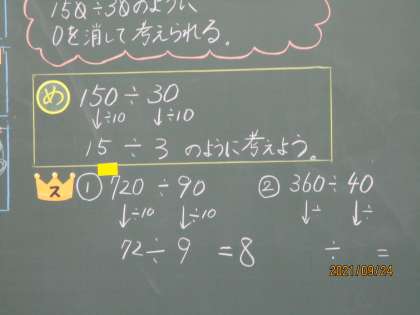 150÷30のように
0を消して考えられる。
め 150÷30
↓÷10 ↓÷10
15÷3 のように考えよう。
ス ① 720÷90
↓÷10 ↓÷10
72÷9 =8
② 360÷40
↓÷ ↓÷
÷ =
2021/09/24